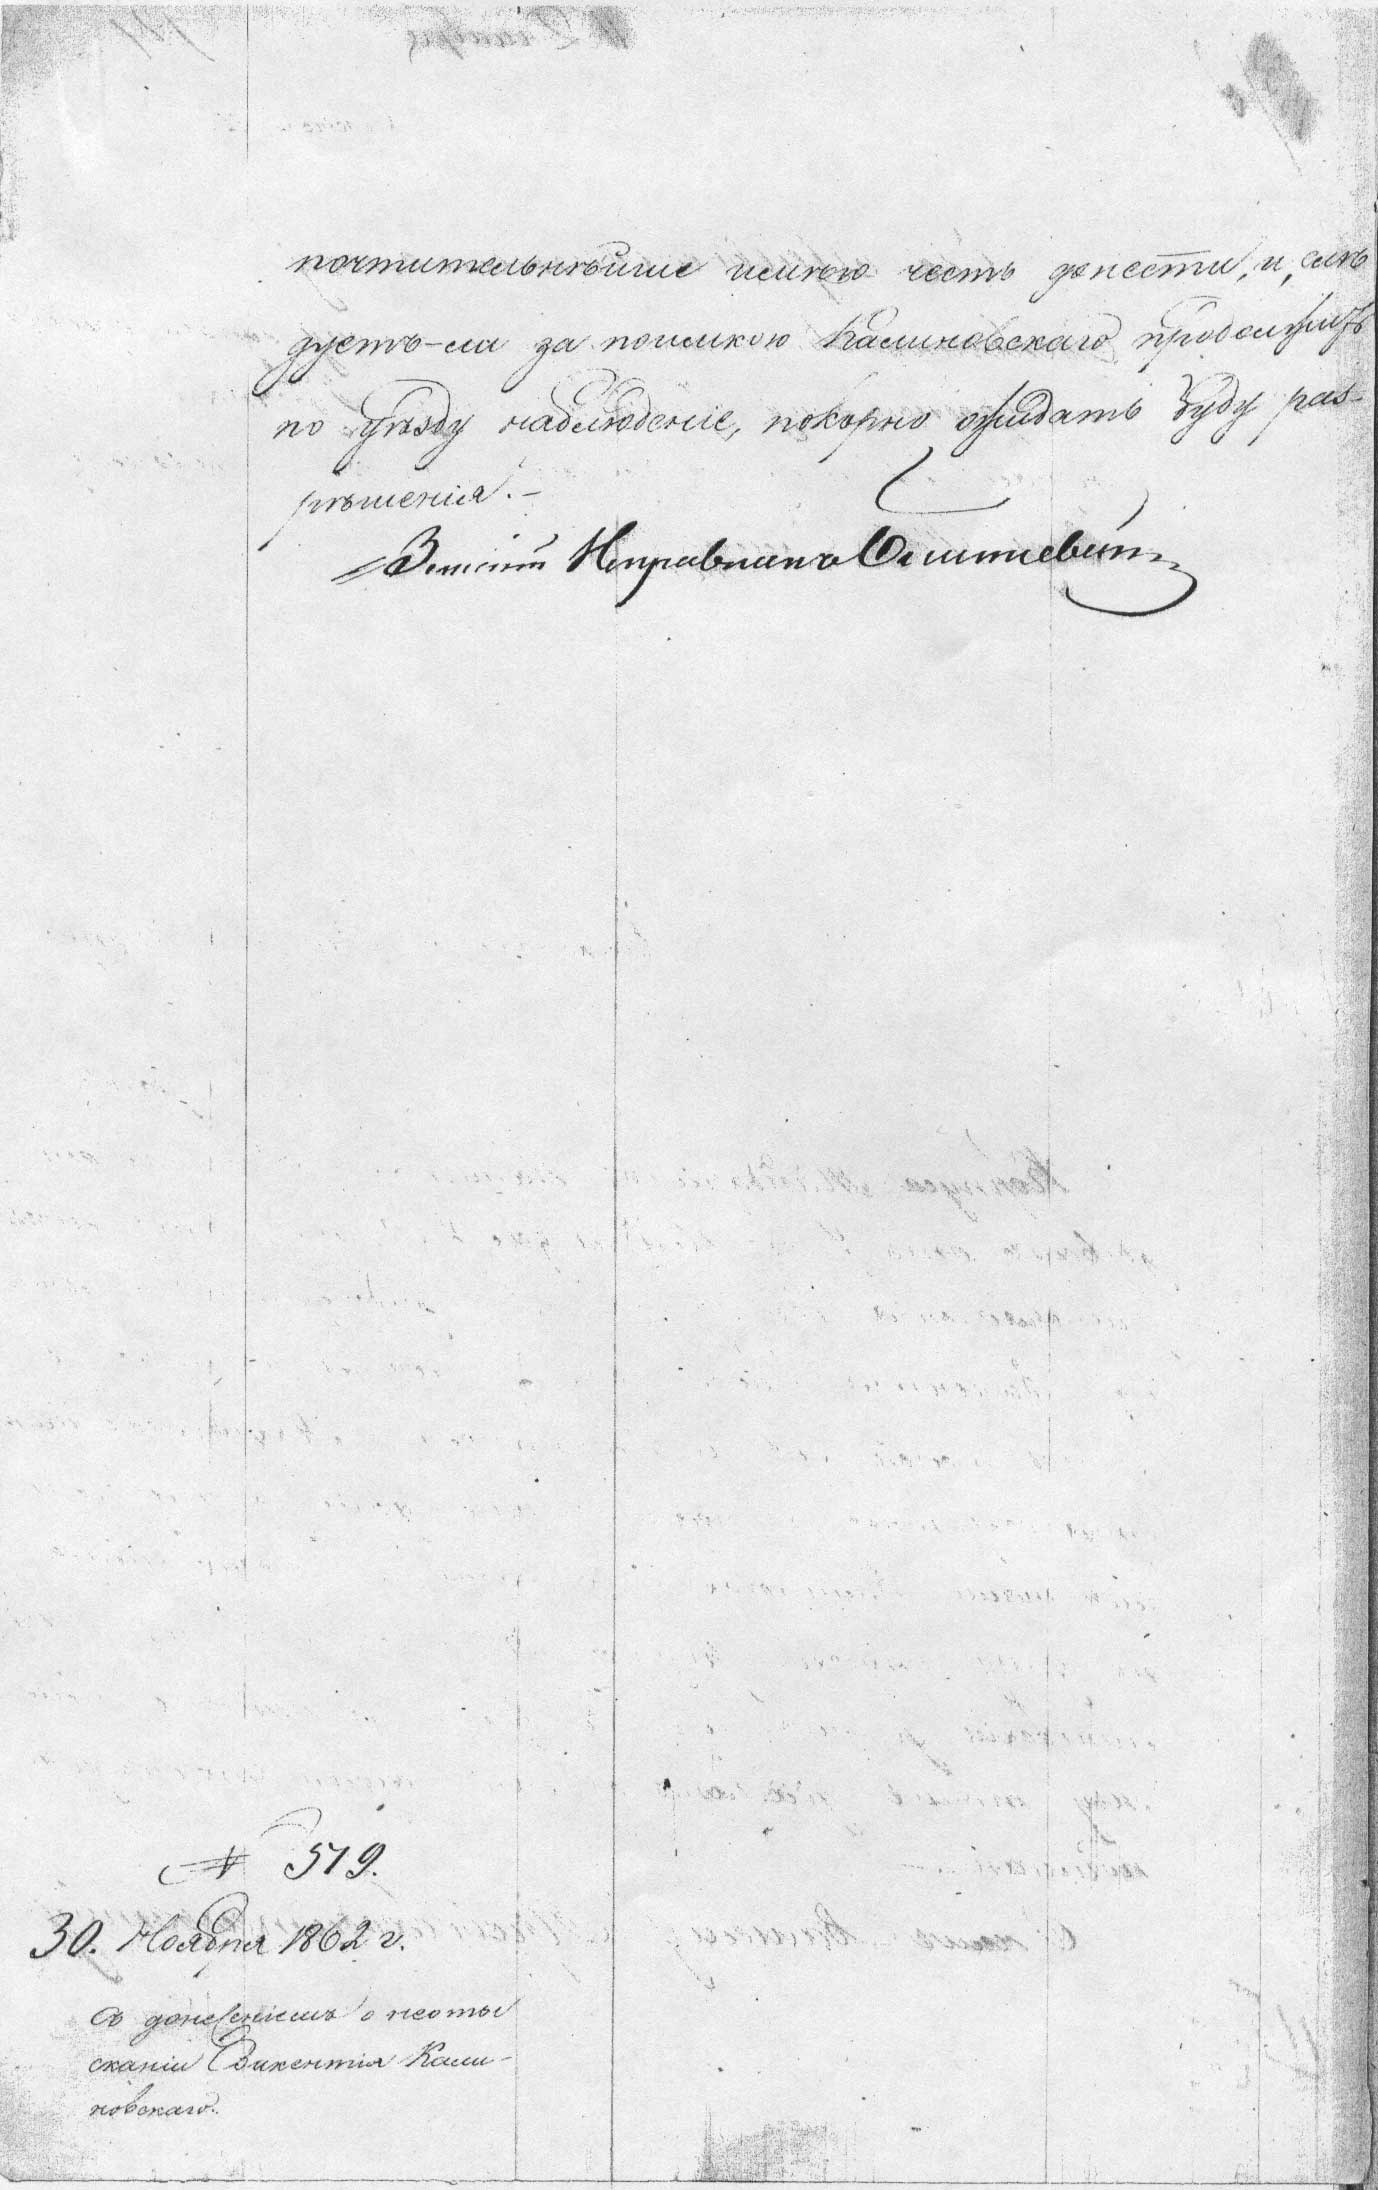 почтительнѣйше имѣю честь донести, и, слѣ
дуетъ-ли за поимкою Калиновскаго продолжать
по уѣзду наблюденіе, покорно ожидать буду раз-
рѣшенія.-
Земскій Исправникъ
№ 519.
30. Ноября 1862 г.
Съ донесеніемъ о неоты
сканіи Викентія Кали-
новскаго.